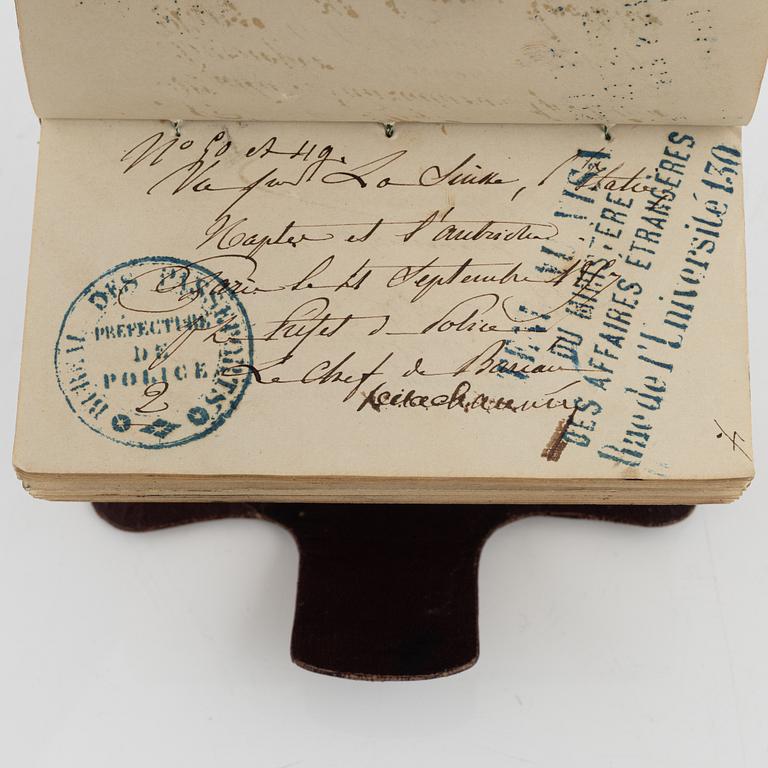 No 50 et 49.
Vu pour La Suisse, l'Italie,
Naples et l'autriche.
Paris le 11 Septembre 1857
Le Préfet de Police
Le Chef de Bureau
BUREAU DES PASSEPORTS
PRÉFECTURE
DE
POLICE
2
DU MINISTÈRE
DES AFFAIRES ÉTRANGÈRES
Rue de l'Université 130